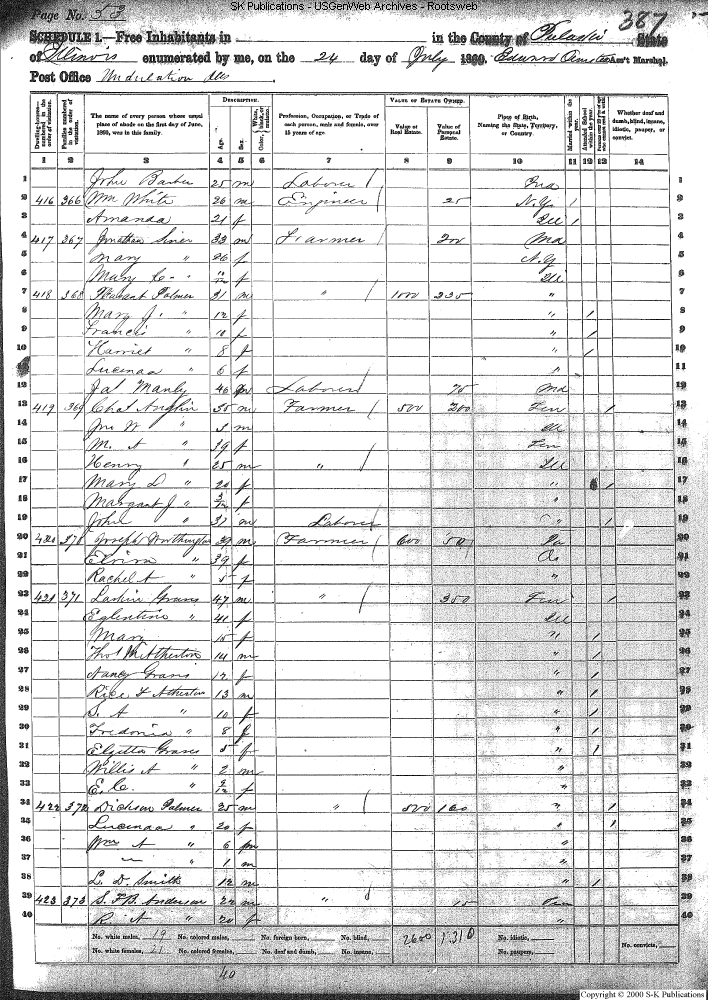 SK Publications - USGenWeb Archives - Rootsweb
Page No. 53
387
SCHEDULE 1.—Free Inhabitants in in the County of Pulaski State
of Illinois enumerated by me, on the 24 day of July 1860. Edward Ass't Marshal.
Post Office Undulation Ills
DESCRIPTION. VALUE OF ESTATE OWNED.
Dwelling-houses—numbered in the order of visitation. Families numbered in the order of visitation. The name of every person whose usual place of abode on the first day of June, 1860, was in this family. Age. Sex. Color, White, black, or mulatto. Profession, Occupation, or Trade of each person, male and female, over 15 years of age. Value of Real Estate. Value of Personal Estate. Place of Birth, Naming the State, Territory, or Country. Married within the year. Attended School within the year. Whether deaf and dumb, blind, insane, idiotic, pauper, or convict.
1 2 3 4 5 6 7 8 9 10 11 12 13 14
1 John Barber 25 m Laborer / Ind 1
2 416 366 Wm White 26 m Engineer / 25 N.Y. / 2
3 Amanda 21 f Ill / 3
4 417 367 Jonathan Siner 33 m Farmer 200 Md 4
5 Mary " 26 f N.Y 5
6 Mary C " f Ill 6
7 418 368 Pleasant Palmer 31 m " / 1000 235 " 7
8 Mary J. " 12 f " / 8
9 Francis " 10 f " / 9
10 Harriet " 8 f " / 10
11 Lucinda " 6 f " 11
12 Jas Manly 46 m Laborer / 75 Md 12
13 419 369 Chas Anglin 55 m Farmer / 500 200 Ten / 13
14 Jno W " 3 m Ill 14
15 M. A " 39 f Ten 15
16 Henry " 25 m " / Ill 16
17 Mary D " 20 f " / 17
18 Margaret J " 3/12 f " 18
19 John " 37 m Laborer " / 19
20 420 370 Joseph Worthington 39 m Farmer / 600 50 Pa 20
21 Elvira " 39 f O. 21
22 Rachel A " 5 f " 22
23 421 371 Larkin Graves 47 m " / 350 Ten / 23
24 Eglentine " 41 f Ill 24
25 Mary 15 f " / 25
26 Thos M Atherton 14 m " / 26
27 Nancy Graves 12 f " / 27
28 Rice F Atherton 13 m " / 28
29 S. A " 10 f " / 29
30 Fredonia " 8 f " / 30
31 Elzetta Graves 5 f " / 31
32 Willis A " 2 m " 32
33 E. C. " f " 33
34 422 372 Dickson Palmer 25 m " / 500 160 " / 34
35 Lucinda " 20 f " / 35
36 Wm A " 6 m " 36
37 — " 1 m " 37
38 L. D. Smith 12 m " / 38
39 423 373 S. F. B. Anderson 22 m " / 15 Ten 39
40 R. A " 20 f " 40
No. white males, 19 No. colored males, No. foreign born, No. blind, 2600 1310 No. idiotic, No. convicts,
No. white females, 21 No. colored females, No. deaf and dumb, No. insane, No. paupers,
40
Copyright © 2000 S-K Publications